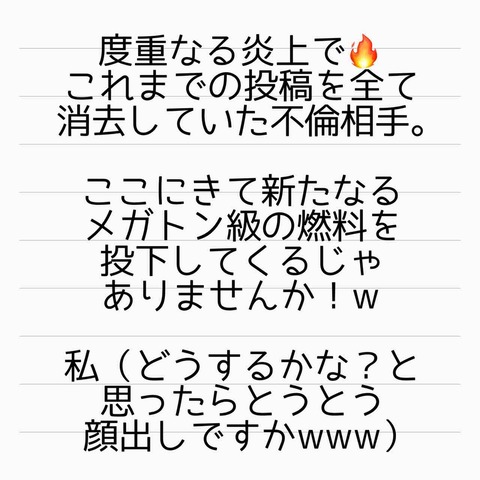 度重なる炎上で🔥
これまでの投稿を全て
消去していた不倫相手。
ここにきて新たなる
メガトン級の燃料を
投下してくるじゃ
ありませんか！w
私（どうするかな？と
思ったらとうとう
顔出しですかwww）